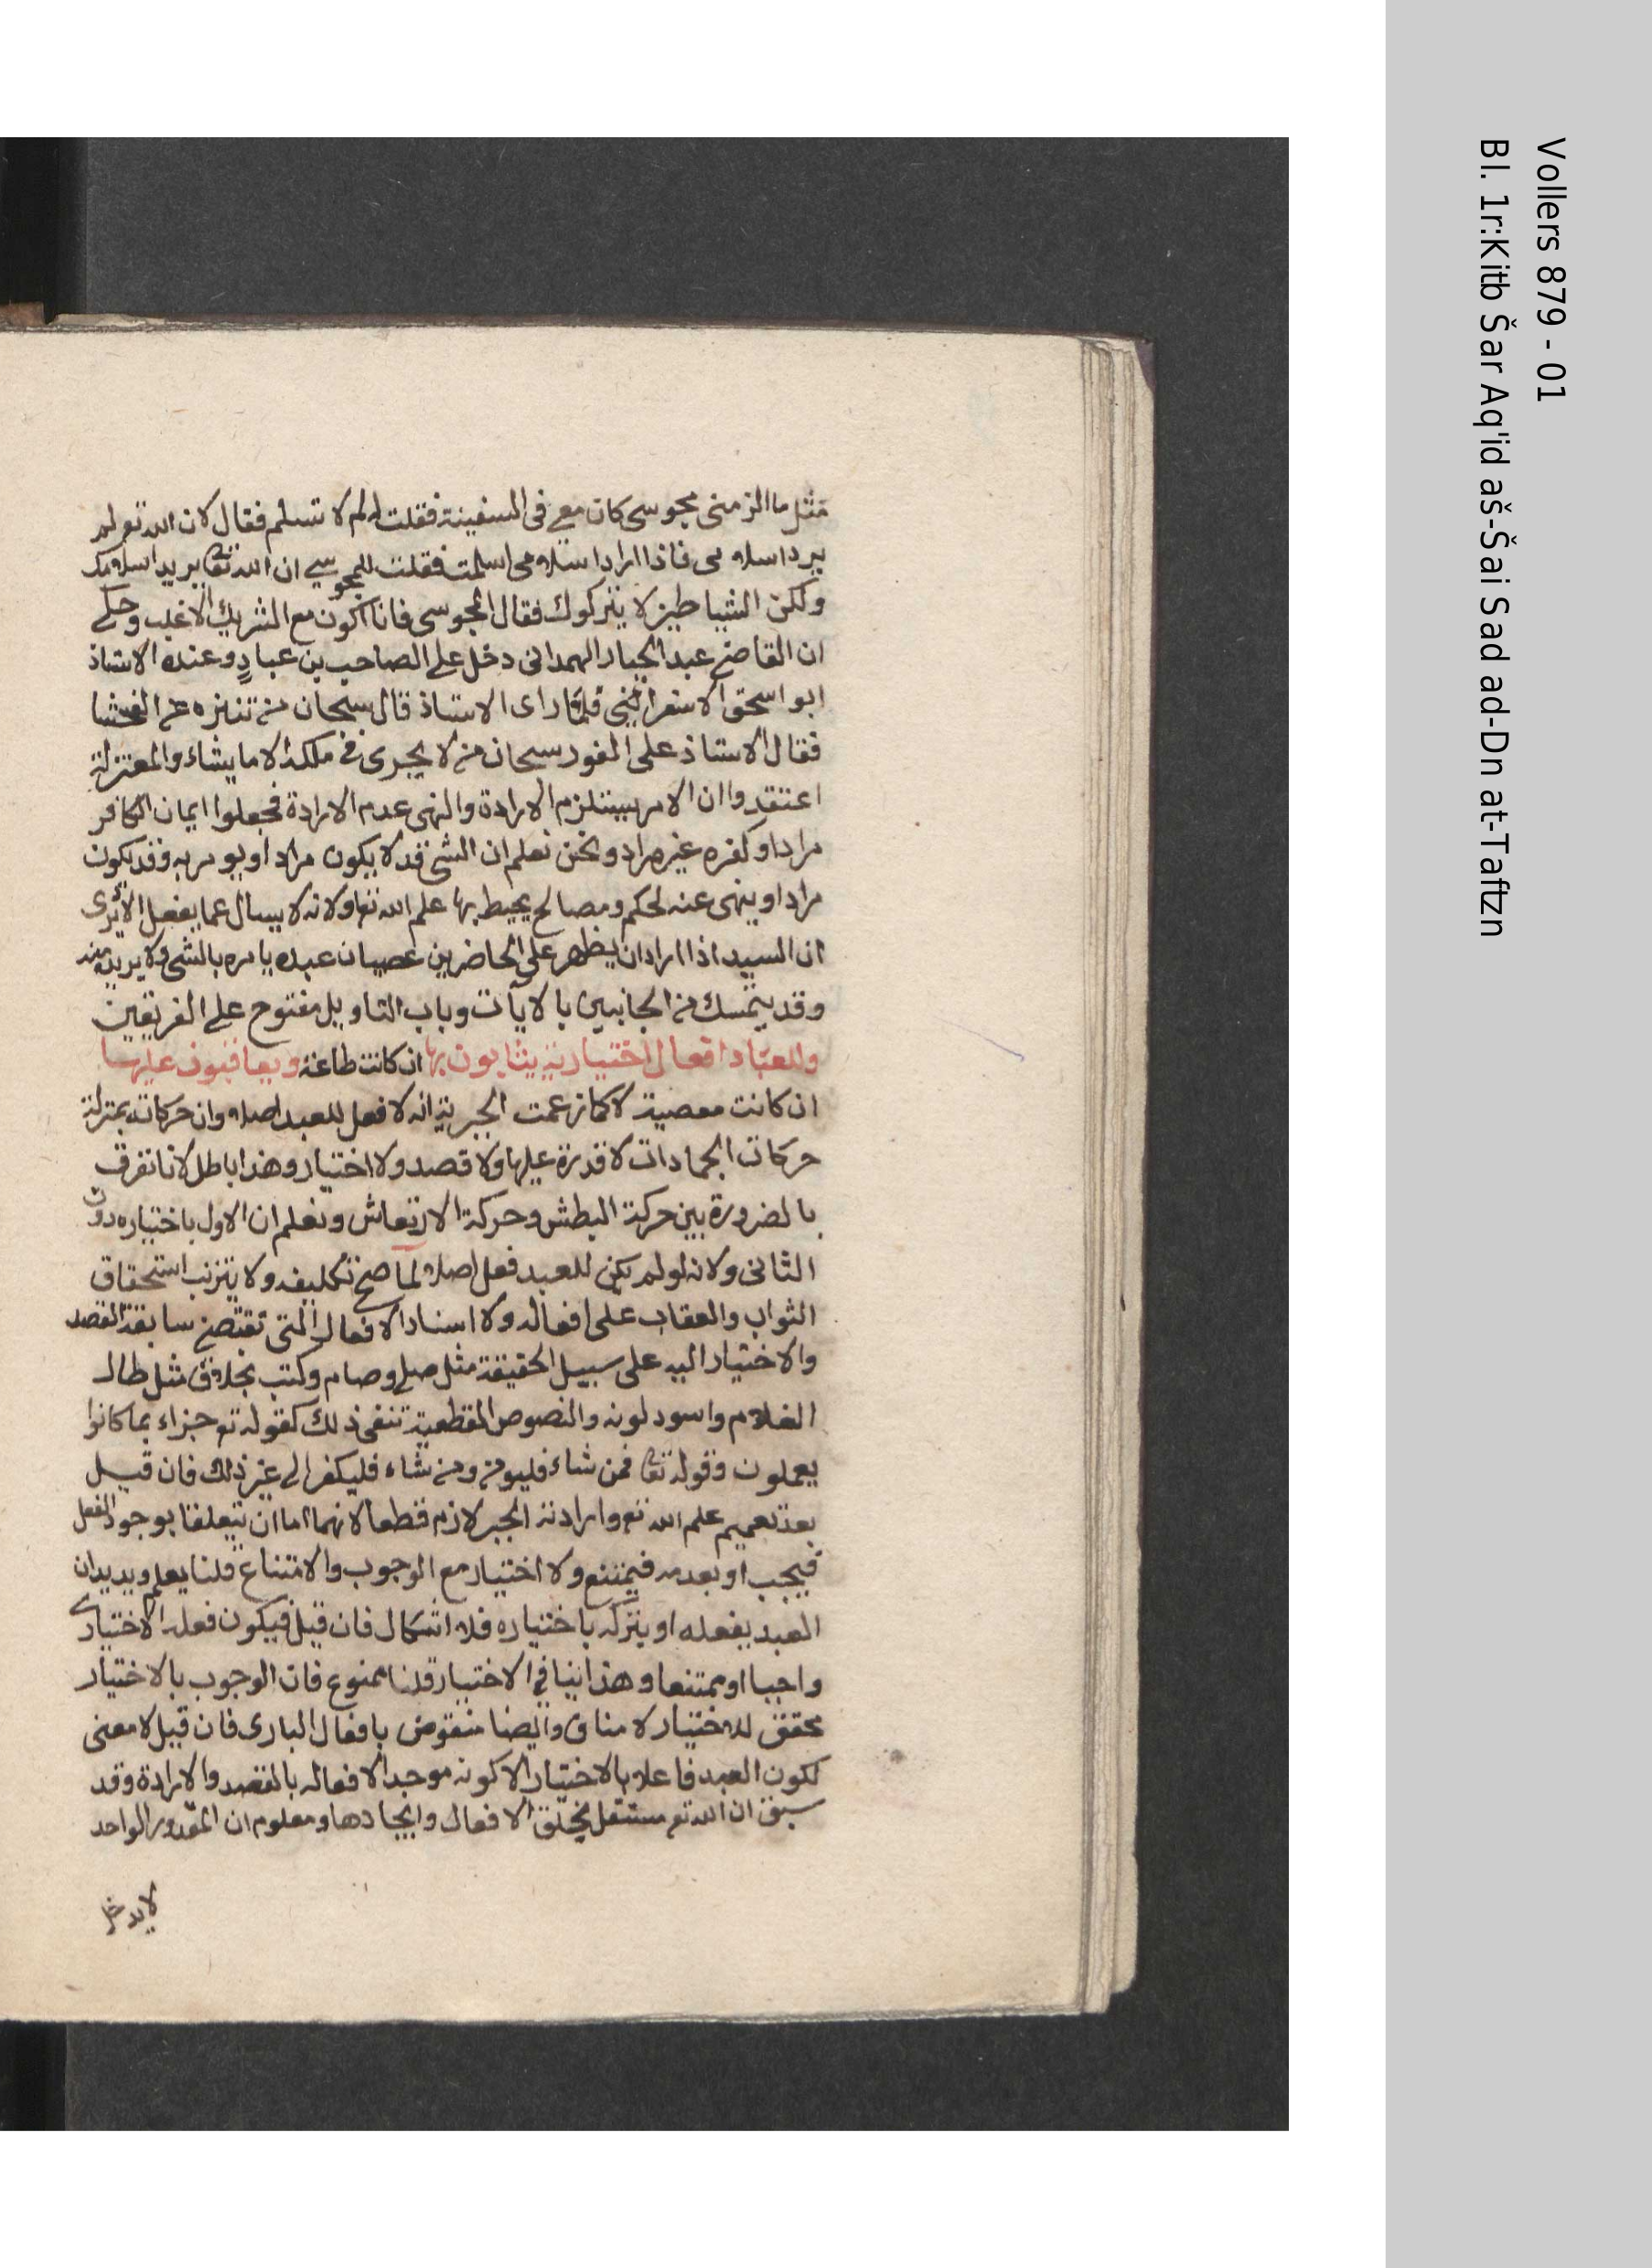 مثل ما الزمنى مجوسى كان معى فى السفينة فقلت له لم لا تسلم فقال لان الله تع لم
يرد اسلامى فاذا اراد اسلامى اسلمت فقلت للمجوسى ان الله تعا يريد اسلامك
ولكن الشياطين لا يتركوك فقال المجوسى فانا اكون مع الشريك الاغلب وحكى
ان القاضى عبد الجبار الهمدانى دخل على الصاحب بن عباد وعنده الاستاذ
ابو اسحق الاسفراينى فلما راى الاستاذ قال سبحان من تنزه عن الفحشا
فقال الاستاذ على الفور سبحان من لا يجرى فى ملكه الا ما يشاء والمعتزلة
اعتقدوا ان الامر يستلزم الارادة والنهى عدم الارادة فجعلوا ايمان الكافر
مرادا وكفره غير مراد ونحن نعلم ان الشئ قد لا يكون مرادا ويومر به وقد يكون
مرادا وينهى عنه لحكم ومصالح يحيط بها علم الله تعا ولانه لا يسال عما يفعل الا يرى
ان السيد اذا اراد ان يظهر على الحاضرين عصيان عبده يامره بالشئ ولا يريده منه
وقد يتمسك من الجانبين بالايات وباب التاويل مفتوح على الفريقين
وللعباد افعال اختيارية يثابون بها ان كانت طاعة ويعاقبون عليها
ان كانت معصية لا كما زعمت الجبرية انه لا فعل للعبد اصلا وان حركاته بمنزلة
حركات الجمادات لا قدرة عليها ولا قصد ولا اختيار وهذا باطل لانا نفرق
بالضرورة بين حركة البطش وحركة الارتعاش ونعلم ان الاول باختياره دون
الثانى ولانه لو لم يكن للعبد فعل اصلا لما صح تكليفه ولا يترتب استحقاق
الثواب والعقاب على افعاله ولا اسناد الافعال التى تقتضى سابقة القصد
والاختيار اليه على سبيل الحقيقة مثل صلى وصام وكتب بخلاف مثل طال
الغلام واسود لونه والنصوص القطعية تنفى ذلك كقوله تع جزاء بما كانوا
يعملون وقوله تعا فمن شاء فليومن ومن شاء فليكفر الى غير ذلك فان قيل
بعد تعميم علم الله تع وارادته الجبر لازم قطعا لانهما اما ان يتعلقا بوجود الفعل
فيجب او بعدمه فيمتنع ولا اختيار مع الوجوب والامتناع قلنا يعلم ويريد ان
العبد يفعله او يتركه باختياره فلا اشكال فان قيل فيكون فعله الاختيارى
واجبا او ممتنعا وهذا ينافى الاختيار قلنا ممنوع فان الوجوب بالاختيار
محقق للاختيار لا مناف وايضا منقوض بافعال البارى فان قيل لا معنى
لكون العبد فاعلا بالاختيار الا كونه موجدا لافعاله بالقصد والارادة وقد
سبق ان الله تع مستقل بخلق الافعال وايجادها ومعلوم ان المقدور الواحد
لا يدخل
Vollers 879 - 01
Bl. 1r:Kitb Šar Aq'id aš-Šai Sad ad-Dn at-Taftzn